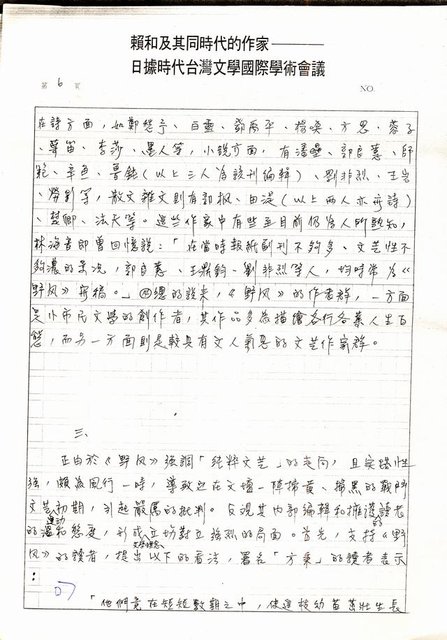 賴和及其同時代的作家———
日據時代台灣文學國際學術會議
第 6 頁
NO.
在詩方面,如鄭愁予、白靈、鄧禹平、楊喚、方思、蓉子
、葉笛、李莎、墨人等,小說方面,有潘壘、郭良蕙、師
範、辛魚、魯鈍(以上三人為該刊編輯)、劉非烈、王岩
、等,散文雜文則有郭楓、田湜(以上兩人亦寫詩)
、楚卿、法天等。這些作家中有些至目前仍為人所熟知,
林海音即曾回憶說:「在當時報紙副刊不夠多、文藝性不
夠濃的景況,郭良蕙、王鼎鈞、劉非烈等人,均時常為《
野風》寄稿。」總的說來,《野風》的作者群,一方面
是小市民文學的創作者,其作品多為描繪各行各業人生百
態,而另一方面則是較具有文人氣息的文藝作家群。
三、
正由於《野風》強調「純粹文藝」的走向,且实踏性
強,頗為風行一時,導致它在文壇一陣掃黃、掃黑的戰鬥
文藝運動初期,引起嚴厲的批判。出現其內部編輯和擁護讀者的
的溫和態度,形成立場對立強烈的局面。首先,支持《野
風》的讀者,提出以下的看法,署名「方秉」的讀者表示
:
「他們竟在短短數期之中,使這枝幼苗茁壯生長